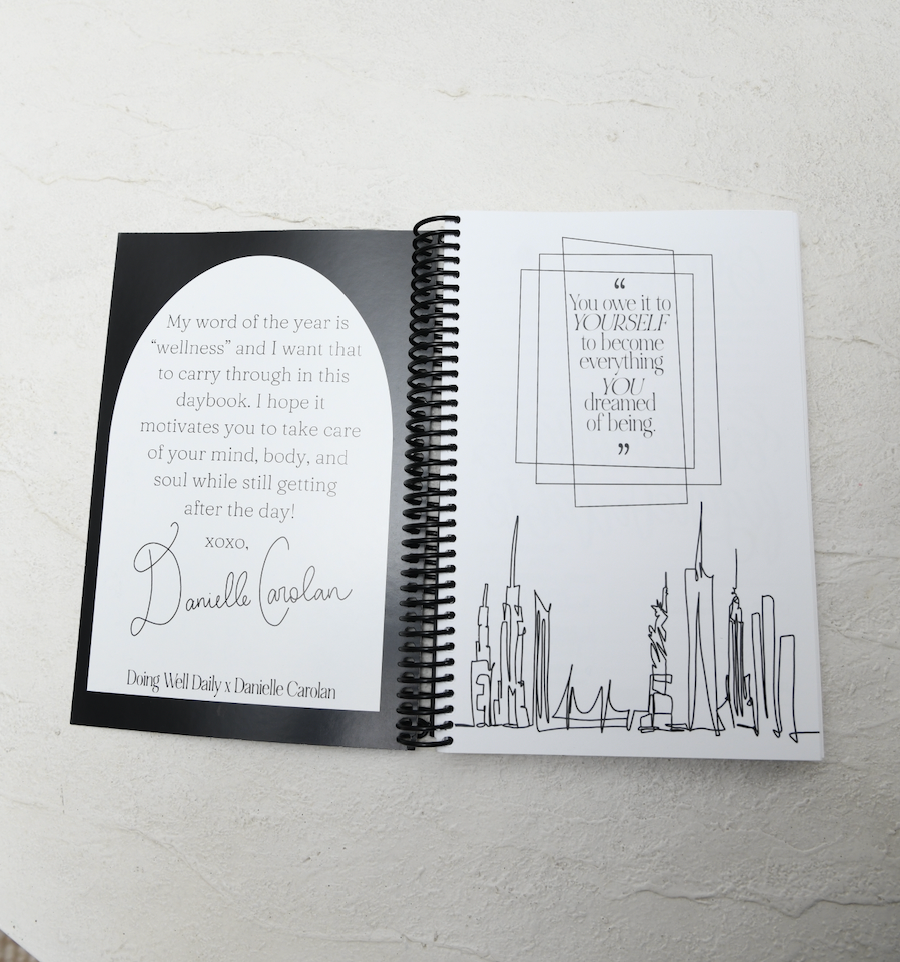 My word of the year is
“wellness” and I want that
to carry through in this
daybook. I hope it
motivates you to take care
of your mind, body, and
soul while still getting
after the day!
xoxo,
Danielle Carolan
Doing Well Daily x Danielle Carolan
“
You owe it to
YOURSELF
to become
everything
YOU
dreamed
of being.
”